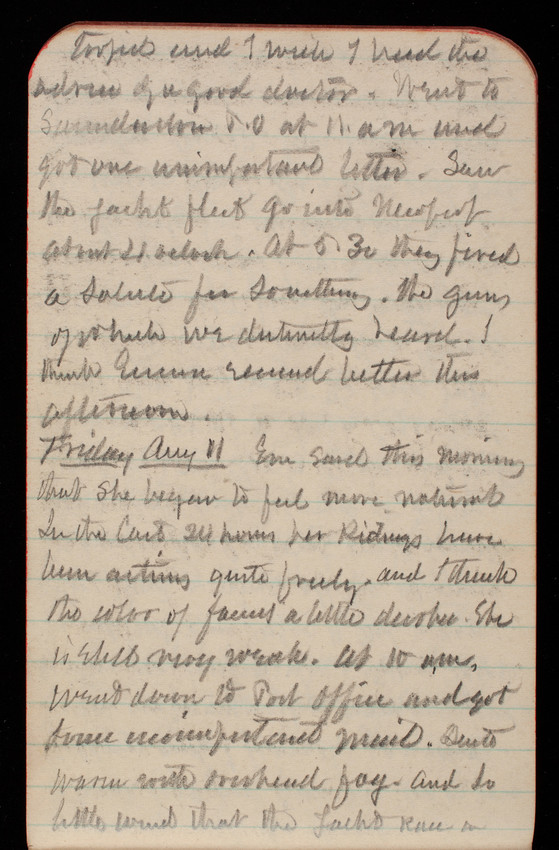 torpid and I wish I had the
advice of a good doctor. Went to
Saunderstown P.O at 11. a m and
got one unimportant letter. Saw
the yacht fleet go into Newport
about 4 oclock. At 5.30 they fired
a salute for something. the guns
of which we distinctly heard. I
think Emma seemed better this
afternoon.
Friday Aug 11 Em said this morning
that she began to feel more natural
In the last 24 hours her Kidneys have
been acting quite freely. and I think
the color of faeces a little darker. She
is still very weak. At 10 a,m,
went down to Post Office and got
some unimportant mail.
warm with overhead fog. and so
little wind that the yacht race